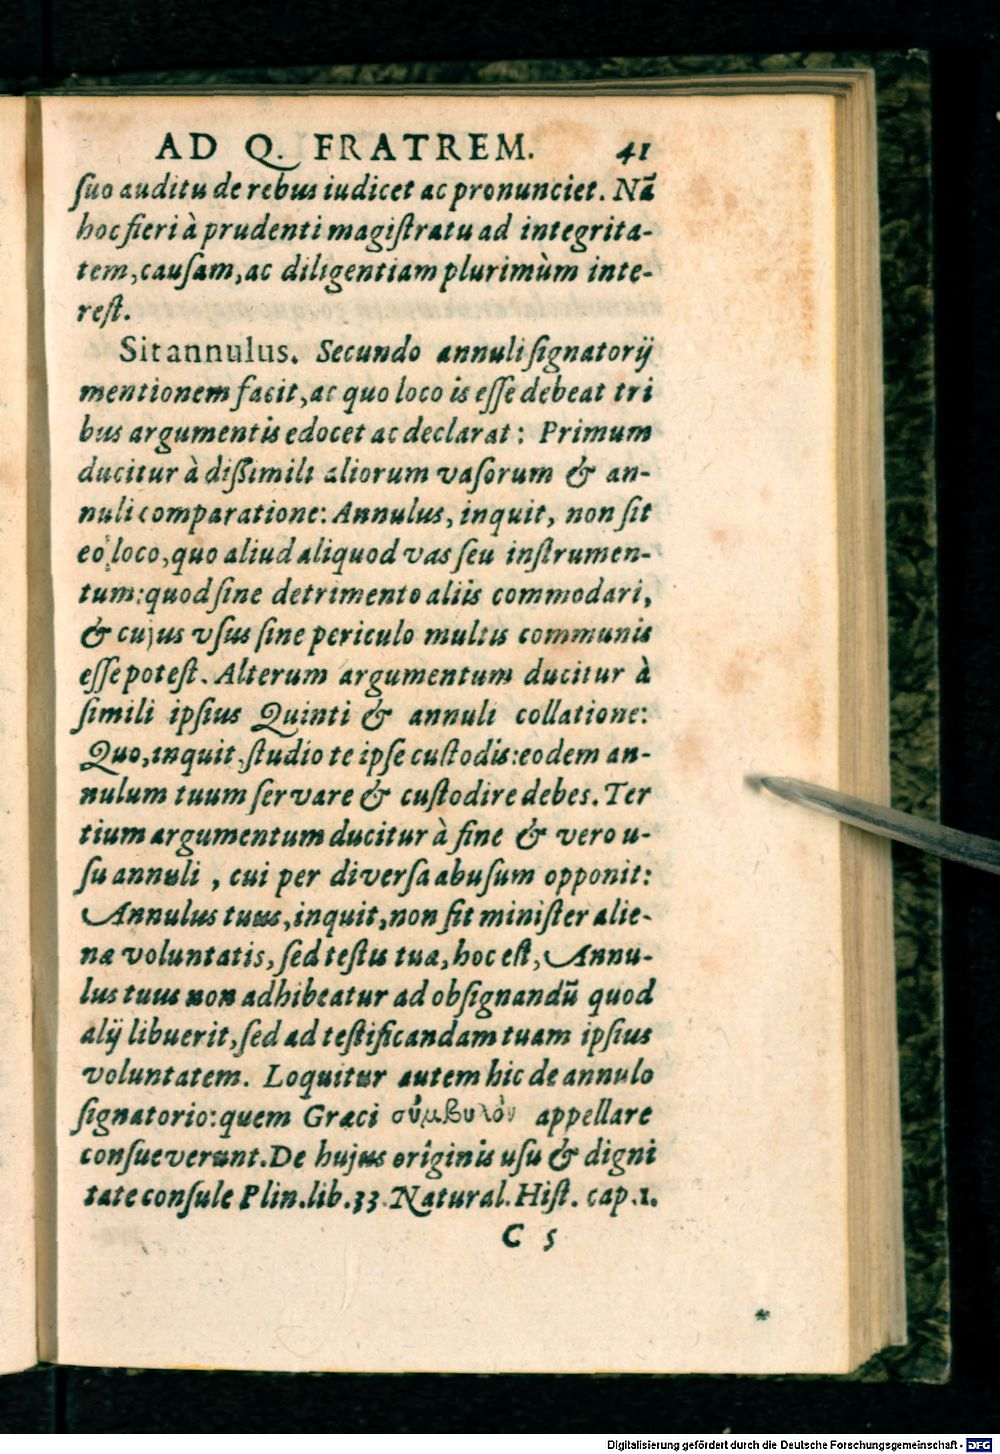 AD Q. FRATREM. 41
ſuo auditu de rebus iudicet ac pronunciet. Nā
hoc fieri à prudenti magiſtratu ad integrita-
tem, cauſam, ac diligentiam plurimùm inte-
reſt.
Sit annulus. Secundo annuli ſignatorij
mentionem facit, ac quo loco is eſſe debeat tri
bus argumentis edocet ac declarat: Primum
ducitur à diſsimili aliorum vaſorum & an-
nuli comparatione: Annulus, inquit, non ſit
eo loco, quo aliud aliquod vas ſeu inſtrumen-
tum: quod ſine detrimento aliis commodari,
& cujus vſus ſine periculo multis communis
eſſe poteſt. Alterum argumentum ducitur à
ſimili ipſius Quinti & annuli collatione:
Quo, inquit, ſtudio te ipſe cuſtodis: eodem an-
nulum tuum ſervare & cuſtodire debes. Ter
tium argumentum ducitur à fine & vero u-
ſu annuli, cui per diverſa abuſum opponit:
Annulus tuus, inquit, non ſit miniſter alie-
næ voluntatis, ſed teſtis tua, hoc eſt, Annu-
lus tuus non adhibeatur ad obſignandū quod
alij libuerit, ſed ad teſtificandam tuam ipſius
voluntatem. Loquitur autem hic de annulo
ſignatorio: quem Græci appellare
conſueverunt. De hujus originis uſu & digni
tate conſule Plin. lib. 33. Natural. Hiſt. cap. 1.
C 5
*
Digitalisierung gefördert durch die Deutsche Forschungsgemeinschaft - DFG